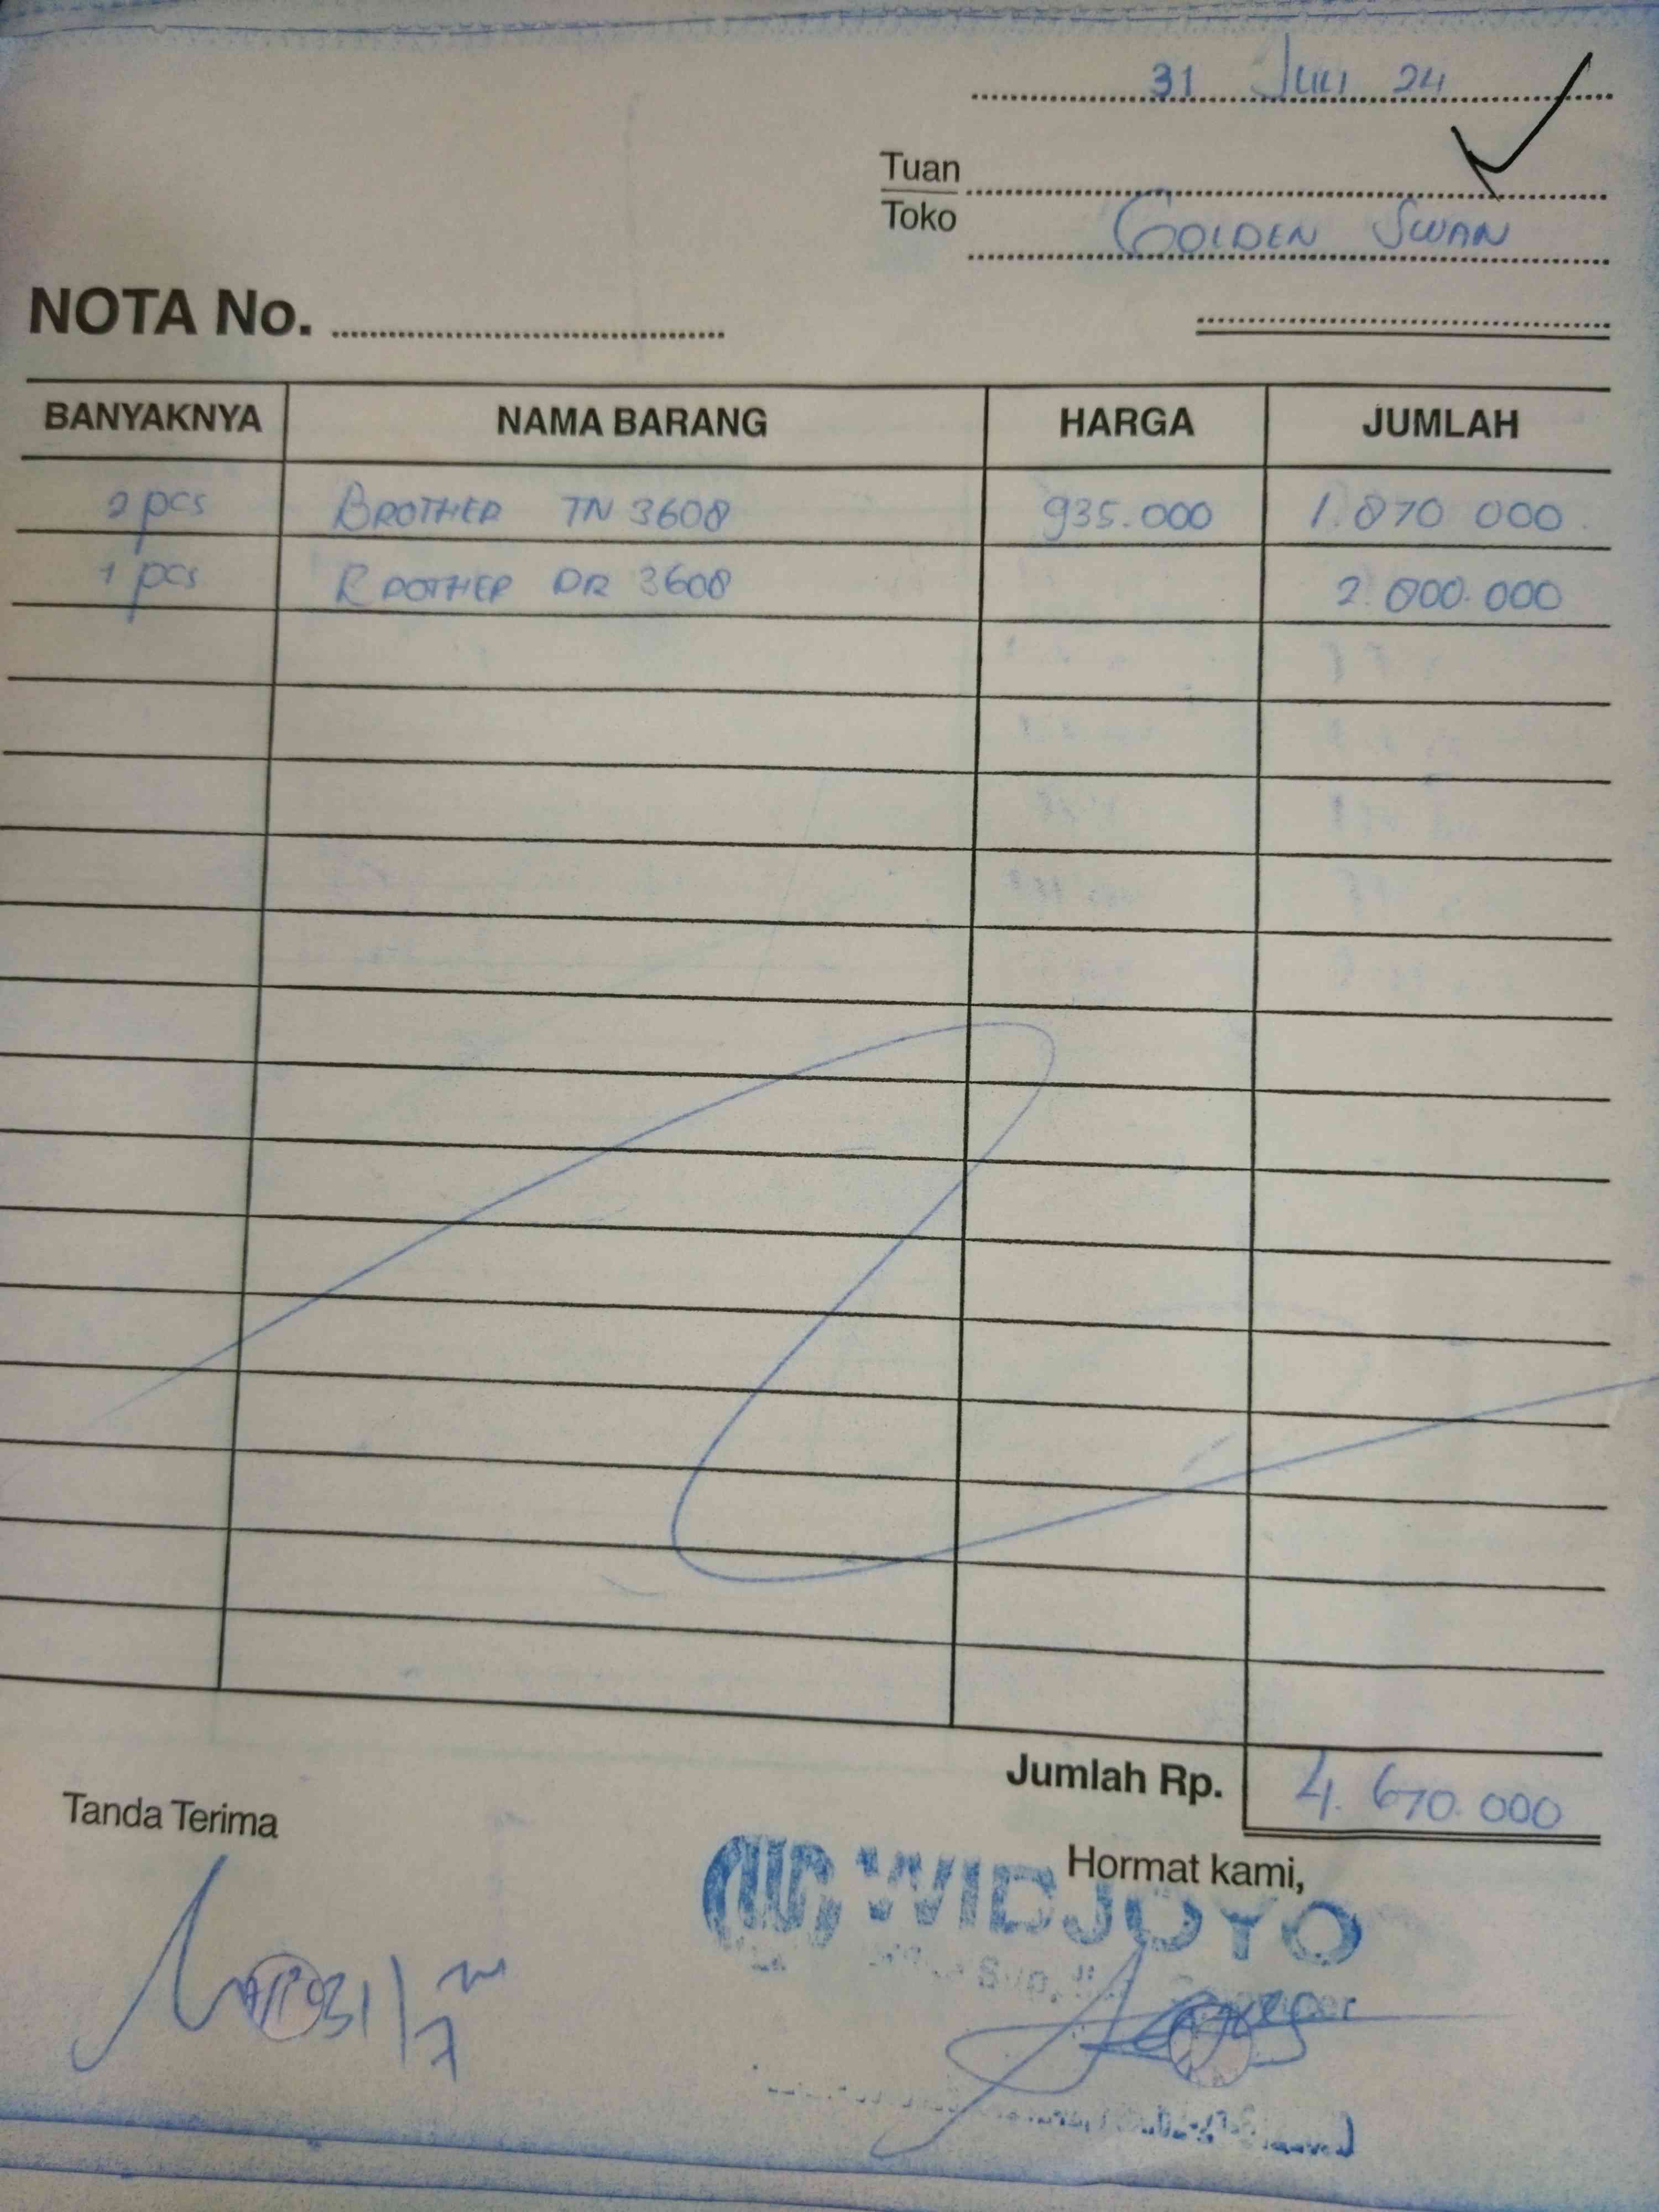 31 Juli 24
Tuan
Toko
GOLDEN SWAN
NOTA No.
BANYAKNYA NAMA BARANG HARGA JUMLAH
2 pcs BROTHER TN 3608 935.000 1.870 000
1 pcs BROTHER DR 3608 2.800.000
Jumlah Rp. 4.670.000
Tanda Terima
Hormat kami,
WIDJOYO
31/7